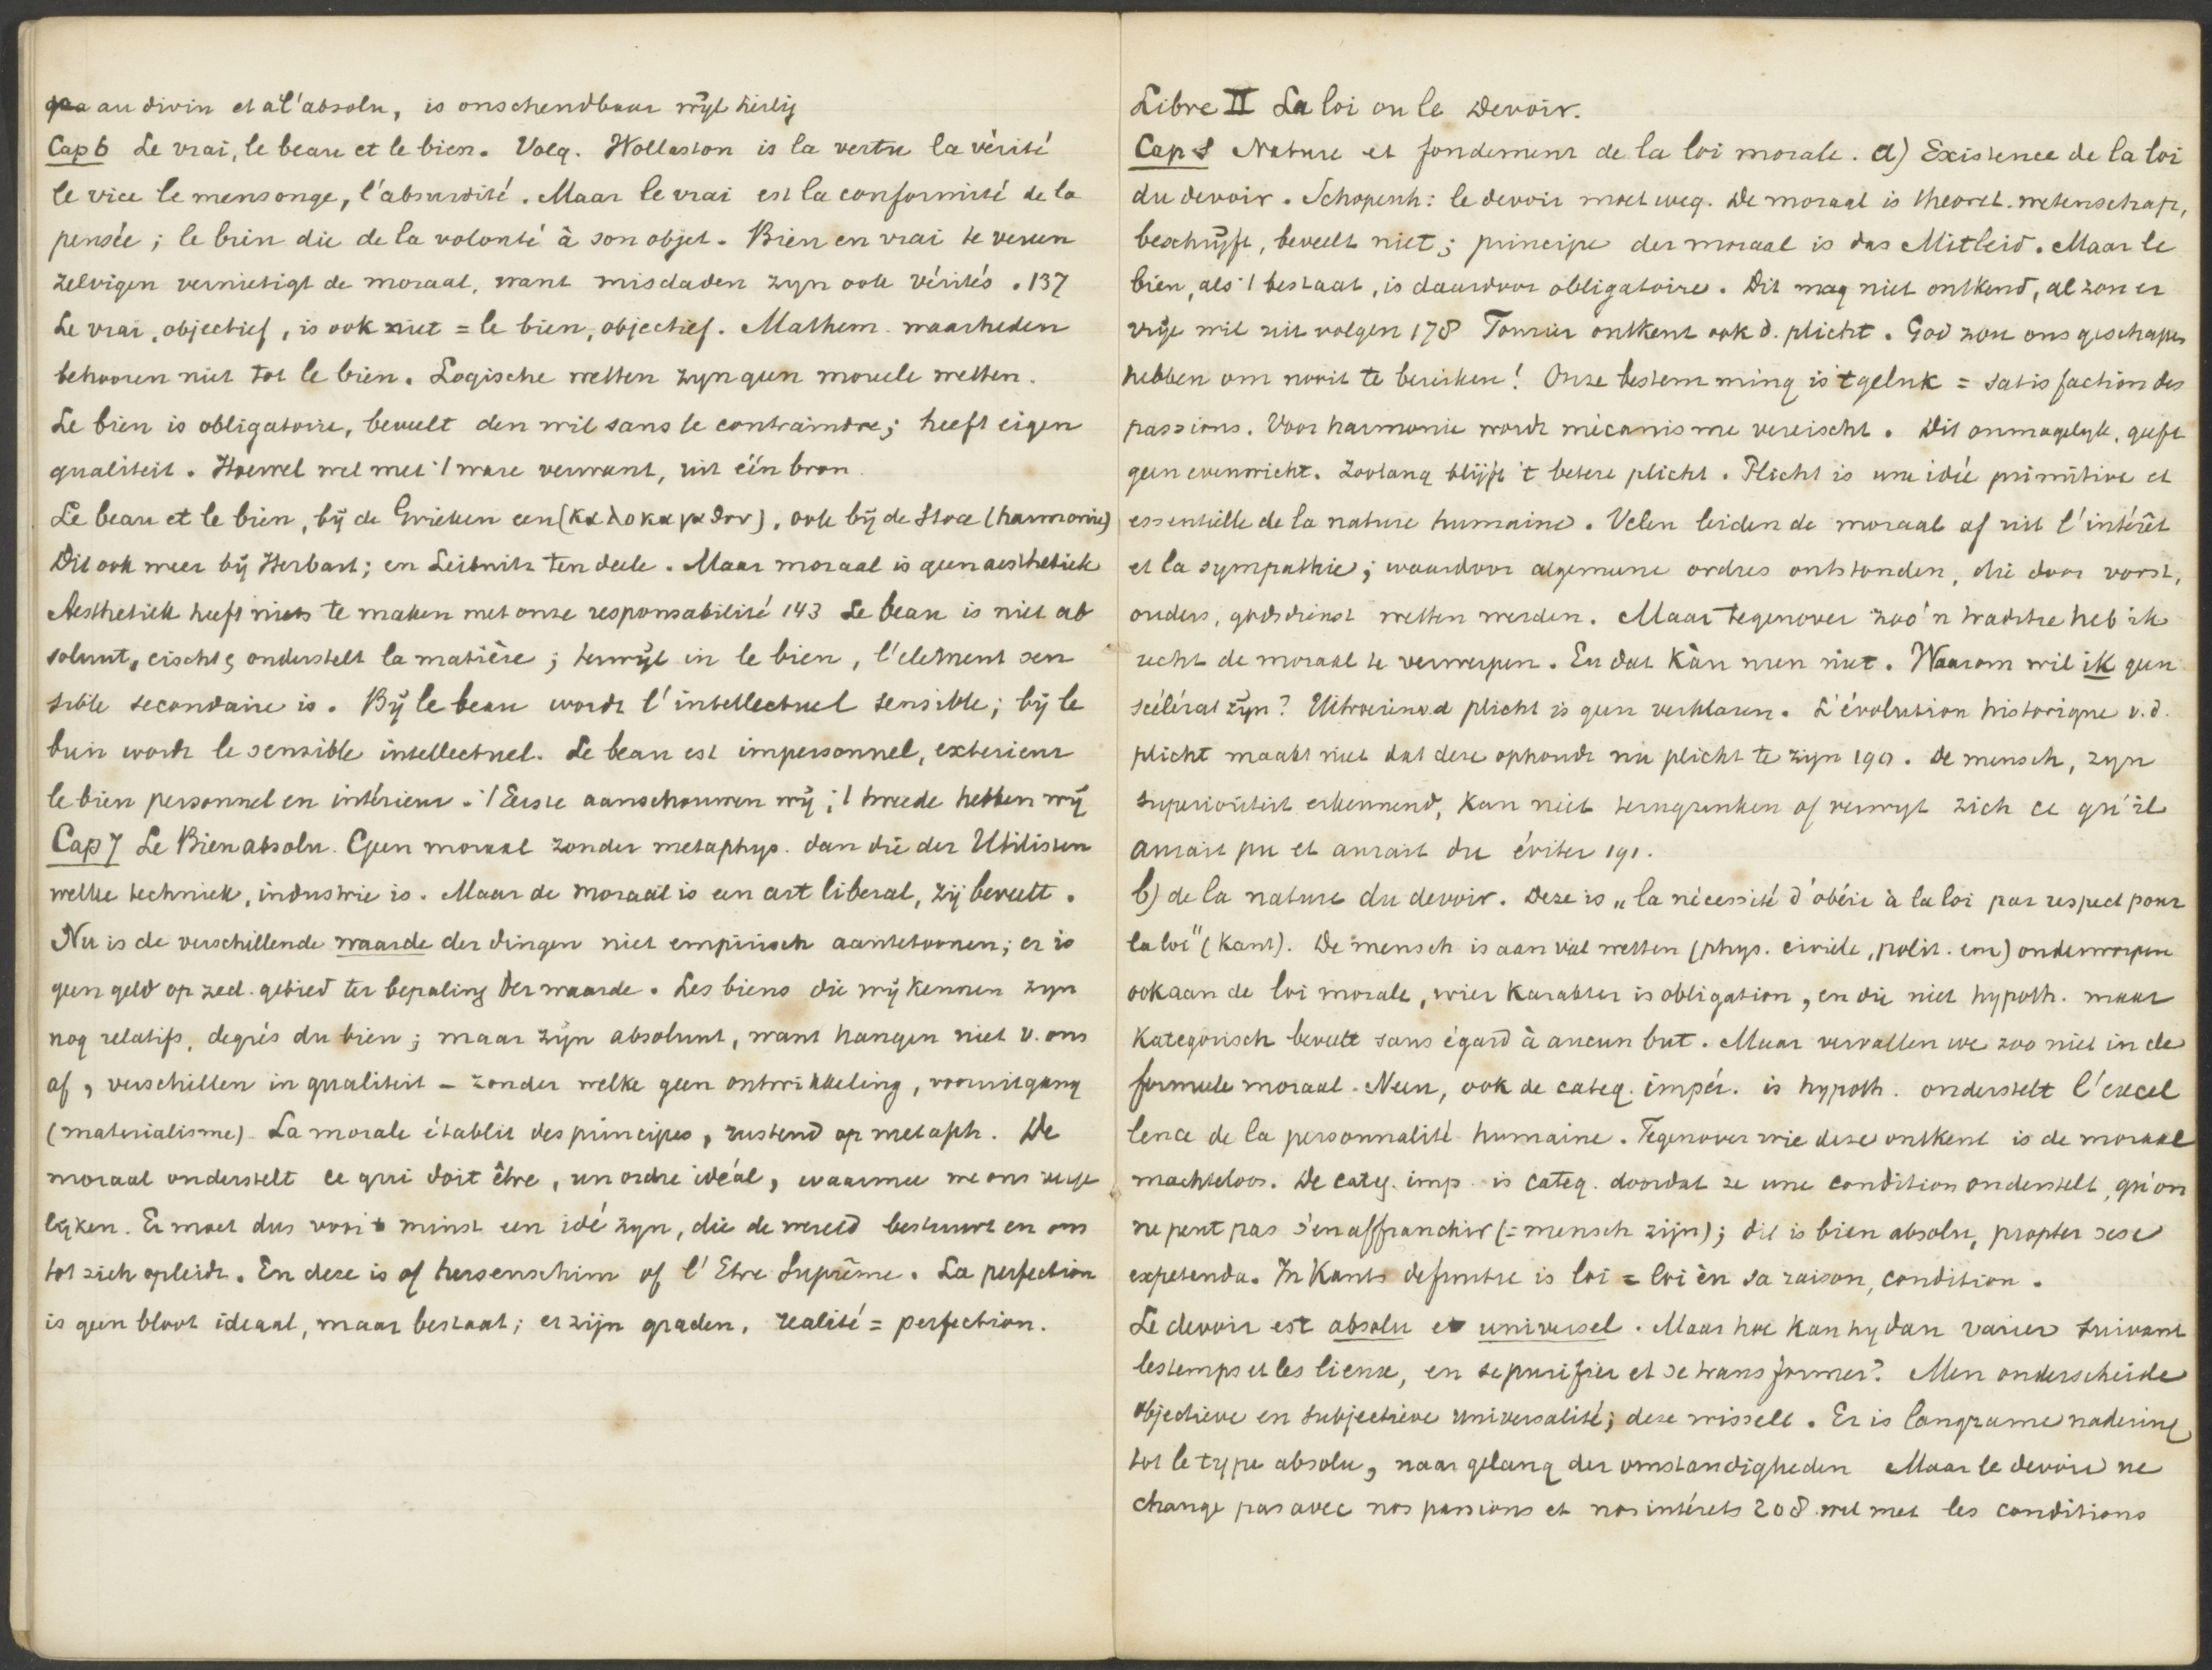 au divin et à l'absolu, is onschendbaar wijl heilig
Cap 6 Le vrai, le beau et le bien. Volg. Wollaston is la vertu la vérité
le vice le mensonge, l'absurdité. Maar le vrai est la conformité de la
pensée; le bien die de la volonté à son objet. Bien en vrai te vereen
zelvigen vernietigt de moraal, want misdaden zyn ook vérités. 137
Le vrai, objectief, is ook niet = le bien, objectief. Mathem. waarheden
behooren niet tot le bien. Logische wetten zyn geen moreele wetten.
Le bien is obligatoire, beveelt den wil sans le contraindre; heeft eigen
qualiteit. Hoewel wel met 't ware verwant, uit één bron.
Le beau et le bien, bij de Grieken een (καλοκαγαθον), ook bij de Stoa (harmonie)
Dit ook weer bij Herbart; en Leibnitz ten deele. Maar moraal is geen aesthetiek
Aesthetiek heeft niets te maken met onze responsabilité 143 Le beau is niet ab
soluut, eischt, onderstelt la matière; terwijl in le bien, l'element sen
sible secondaire is. Bij le beau wordt l'intellectuel sensible; bij le
bien wordt le sensible intellectuel. Le beau est impersonnel, exterieur
le bien personnel en intérieur. 't Eerste aanschouwen wij; 't tweede hebben wij
Cap 7 Le Bien absolu. Geen moraal zonder metaphys. dan die der Utilisten
welke techniek, industrie is. Maar de moraal is een art liberal, zij beveelt.
Nu is de verschillende waarde der dingen niet empirisch aantetoonen; er is
geen geld op zed. gebied ter bepaling der waarde. Les biens die wij kennen zyn
nog relatifs, degrés du bien; maar zijn absoluut, want hangen niet v. ons
af, verschillen in qualiteit – zonder welke geen ontwikkeling, vooruitgang
(materialisme). La morale établit des principes, rustend op metaph. De
moraal onderstelt ce qui doit être, un ordre idéal, waarmee we ons verge
lyken. Er moet dus voor 't minst een idé zyn, die de wereld bestuurt en ons
tot zich opleidt. En deze is of hersenschim of l'Etre Suprême. La perfection
is geen bloot ideaal, maar bestaat; er zijn graden, realité = perfection.
Libre II La loi ou le Devoir.
Cap 1 Nature et fondement de la loi morale. a) Existence de la loi
du devoir. Schopenh: le devoir moet weg. De moraal is theoret. wetenschap,
beschrijft, beveelt niet; principe der moraal is das Mitleid. Maar le
bien, als 't bestaat, is daardoor obligatoire. Dit mag niet ontkend, al zou er
vrije wil uit volgen 178 Fourier ontkent ook d. plicht. God zou ons geschapen
hebben om nooit te bereiken! Onze bestemming is 't geluk = satisfaction des
passions. Voor harmonie wordt mécanisme vereischt. Dit onmogelyk, geeft
geen evenwicht. Zoolang blijft 't betere plicht. Plicht is une idée primitive et
essentielle de la nature humaine. Velen leiden de moraal af uit l'intérêt
et la sympathie; waardoor algemeene ordres ontstonden, die door vorst,
ouders, godsdienst wetten werden. Maar tegenover zoo'n traditie heb ik
recht de moraal te verwerpen. En dat kàn men niet. Waarom wil ik geen
scélérat zijn? Uitroeiend plicht is geen verklaren. L'évolution historique v.d.
plicht maakt niet dat deze ophoudt nu plicht te zijn 190. De mensch, zyn
superioriteit erkennend, kan niet of verwyt zich ce qu'il
aurait pu et aurait du éviter 191.
b) de la nature du devoir. Deze is „la nécessité d'obéir à la loi par respect pour
la loi" (Kant). De mensch is aan vàl wetten (phys. civiele, polit. enz) onderworpen
ook aan de loi morale, wier karakter is obligation, en die niet hypoth. maar
kategorisch beveelt sans égard à aucun but. Maar vervallen we zoo niet in de
formeele moraal. Neen, ook de categ. impér. is hypoth. onderstelt l'excel
lence de la personnalité humaine. Tegenover wie deze ontkent is de moraal
machteloos. De categ. imp. is categ. doordat ze une condition onderstelt, qu'on
ne peut pas s'en affranchir (= mensch zijn); dit is bien absolu, propter sese
expetenda. In Kants definitie is loi = loi èn sa raison, condition.
Le devoir est absolu et universel. Maar hoe kan hy dan varier suivant
les temps et les lieux, en se purifier et se transformer? Men onderscheide
objectieve en subjectieve universalité; deze wisselt. Er is langzame nadering
tot le type absolu, naar gelang der omstandigheden Maar le devoir ne
change pas avec nos passions et nos intérets 208 wel met les conditions